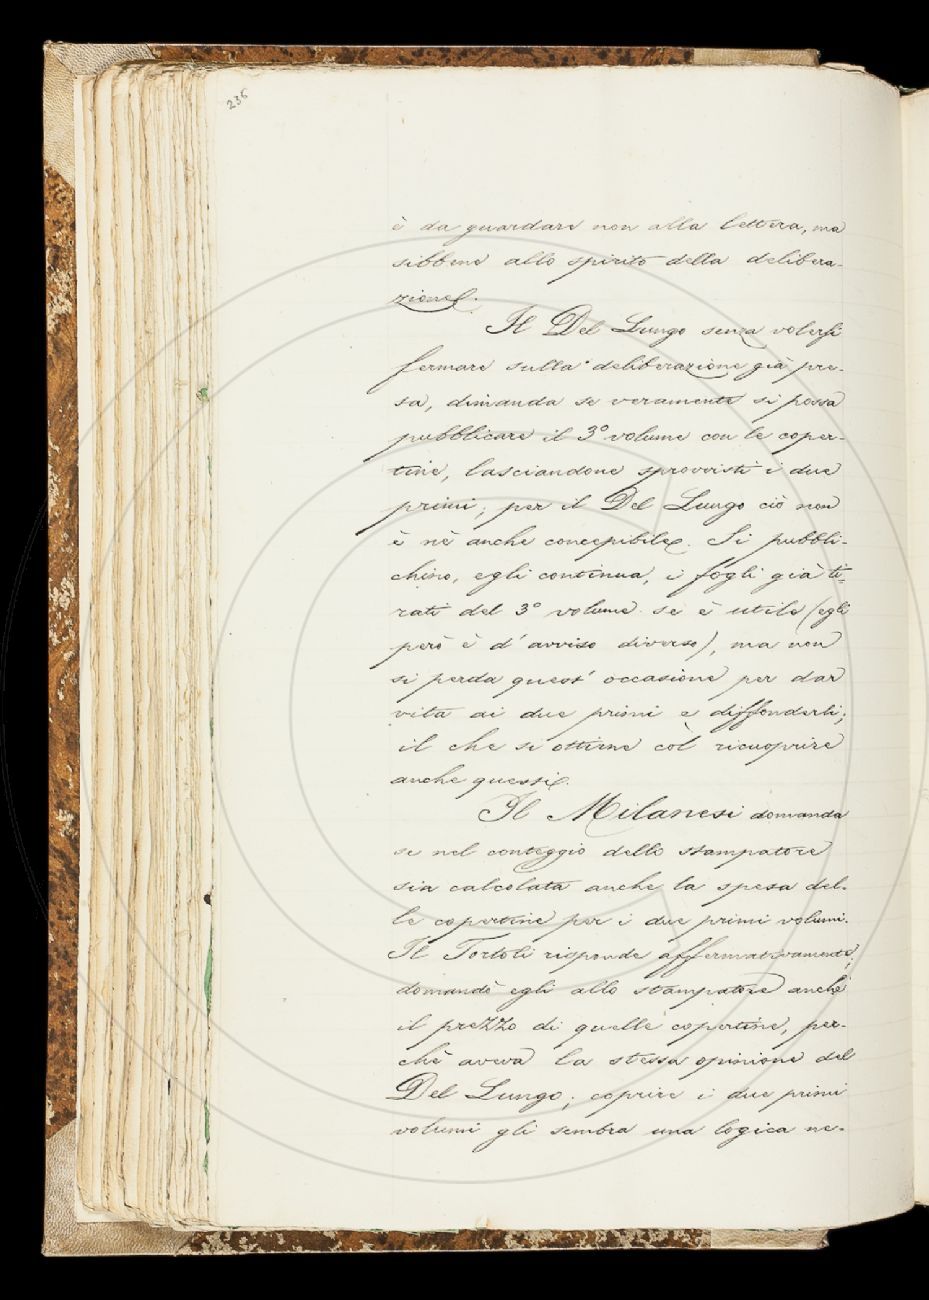 236
è da guardare non alla lettera, ma
sibbene allo spirito della delibera-
zione.
Il Del Lungo senza volersi
fermare sulla deliberazione già pre-
sa, dimanda se veramente si possa
pubblicare il 3º volume con le coper-
tine, lasciandone sprovvisti i due
primi; per il Del Lungo ciò non
è nè anche concepibile. Si pubbli-
chino, egli continua, i fogli già ti-
rati del 3º volume se è utile (egli
però è d'avviso diverso), ma non
si perda quest'occasione per dar
vita ai due primi e diffonderli;
il che si ottiene col ricuoprire
anche questi.
Il Milanesi domanda
se nel conteggio dello stampatore
sia calcolata anche la spesa del-
le copertine per i due primi volumi.
Il Tortoli risponde affermativamente;
domandò egli allo stampatore anche
il prezzo di quelle copertine, per-
chè aveva la stessa opinione del
Del Lungo; coprire i due primi
volumi gli sembra una logica ne-